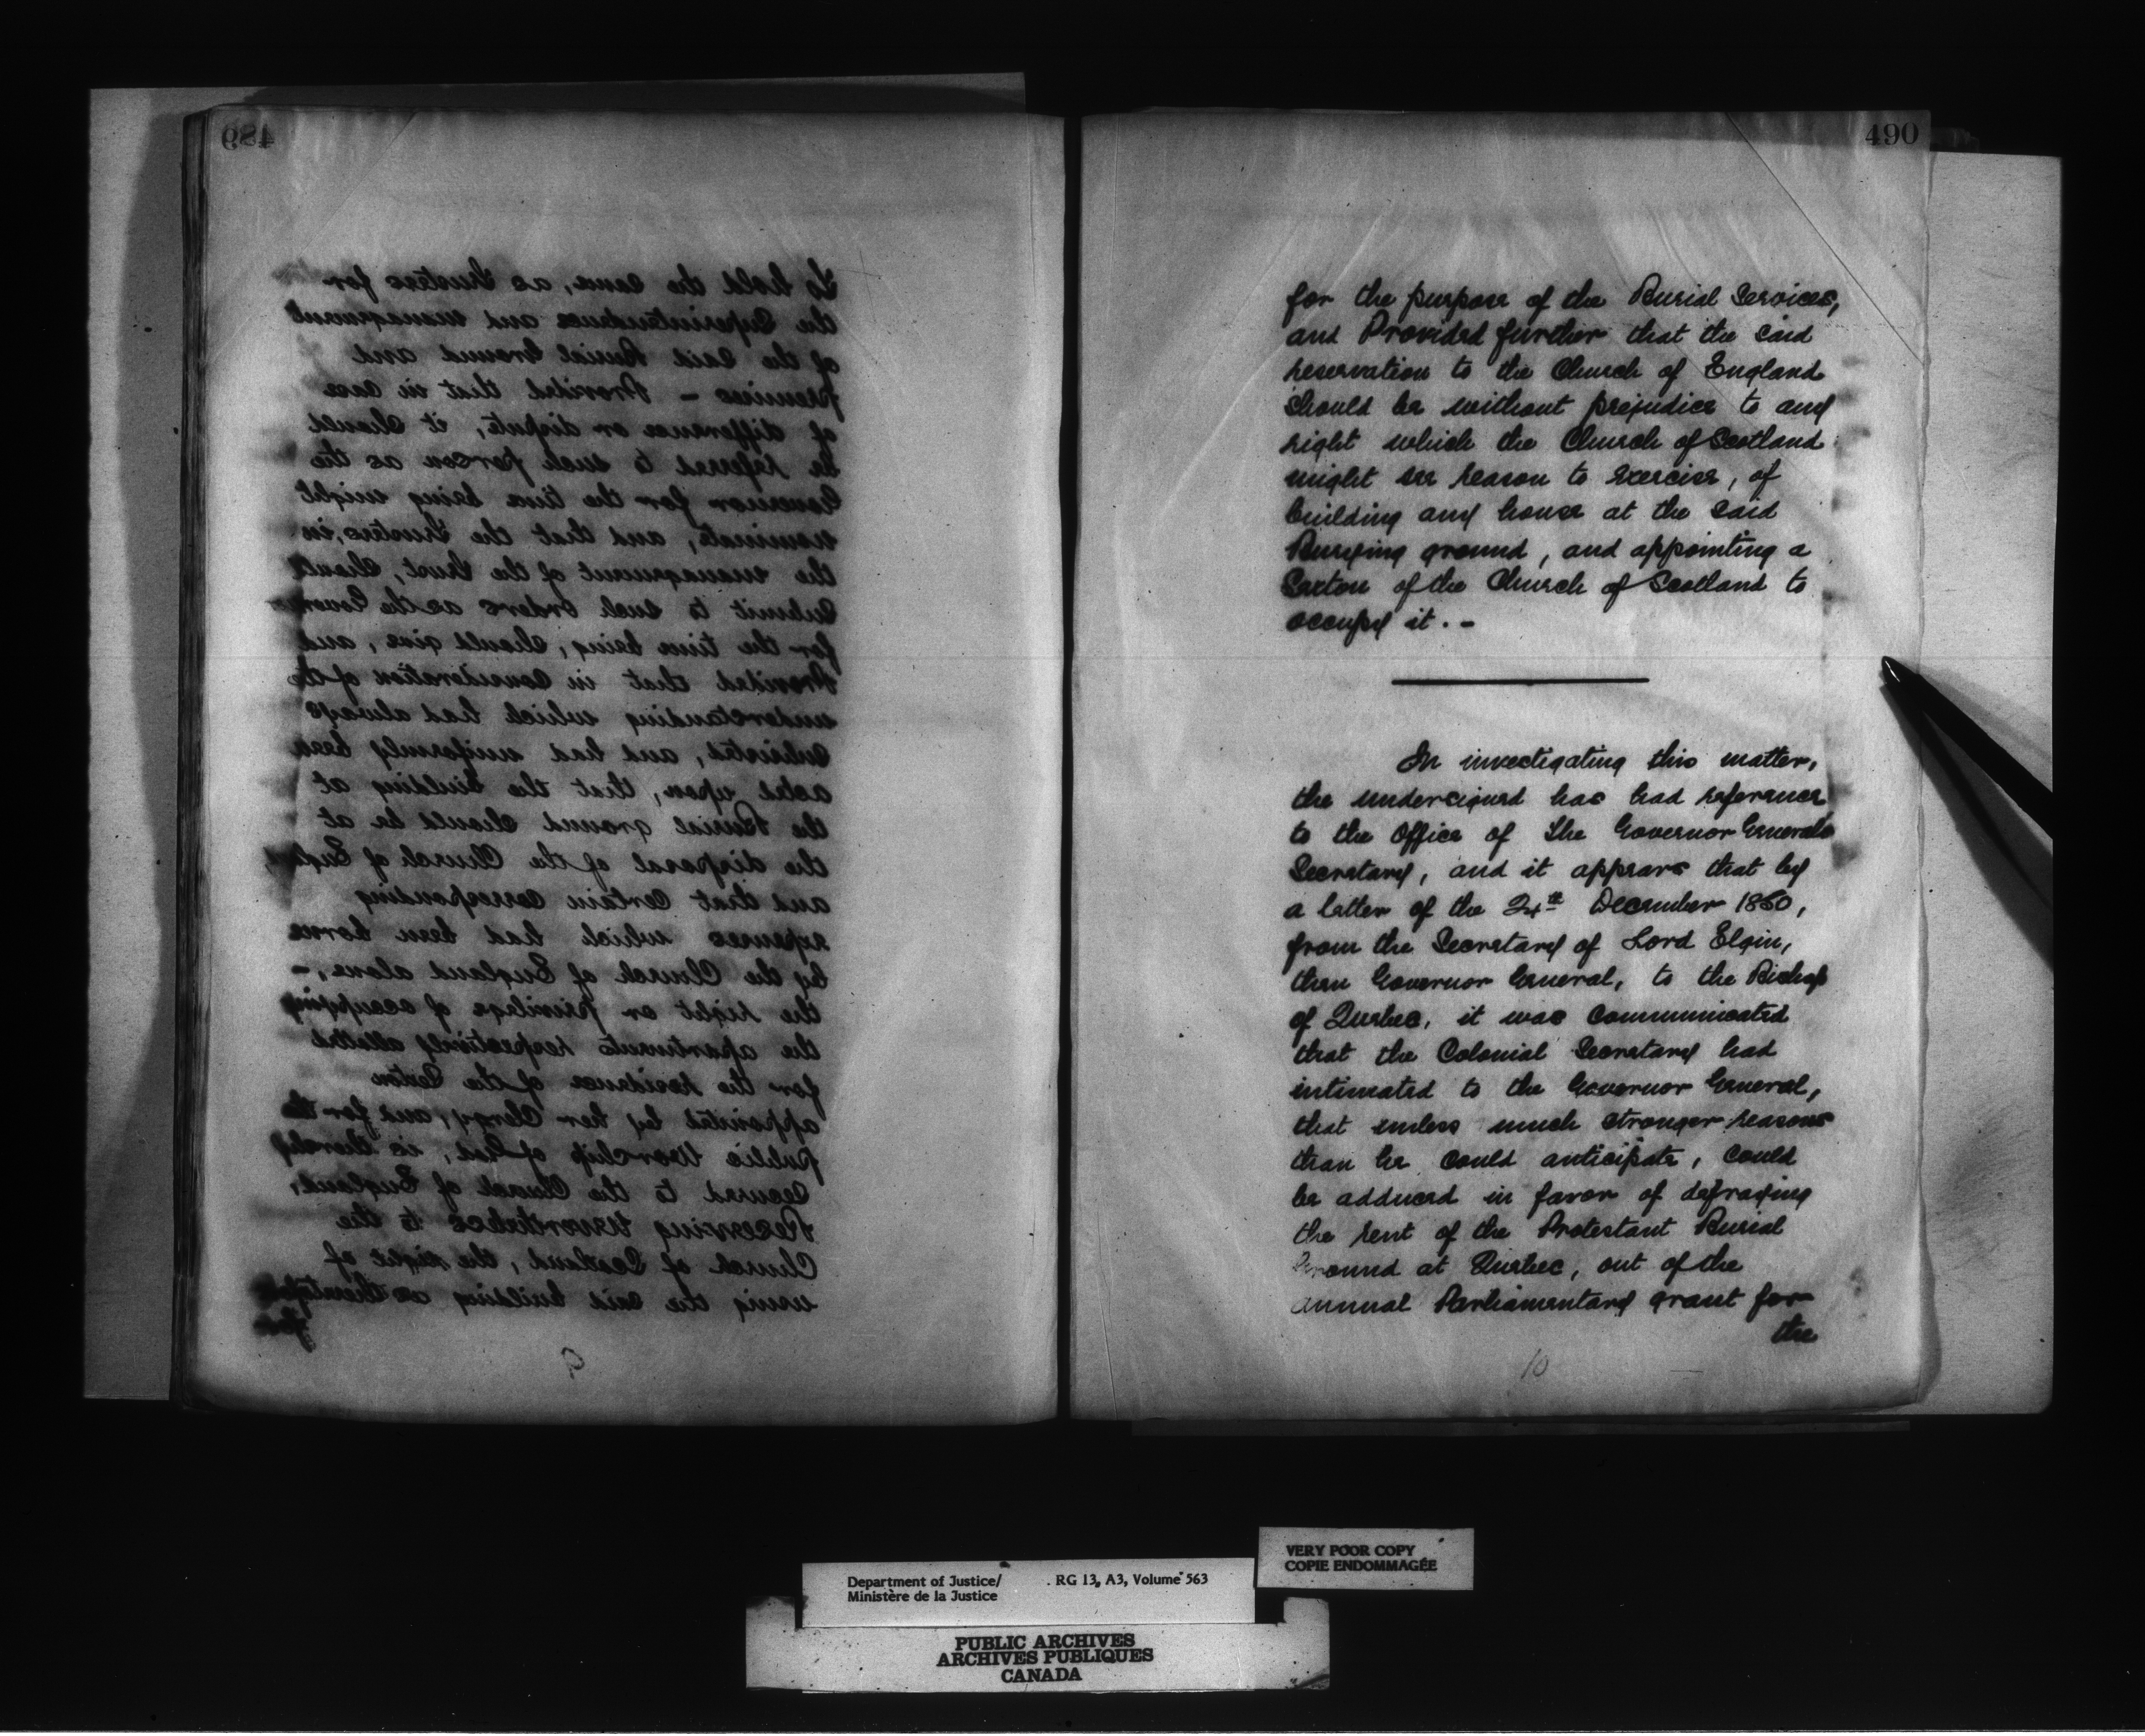 489
To hold the same, as Trustees for
the Superintendence and management
of the said Burial Ground and
premises - Provided that in case
of difference or dispute, it should
be referred to such person as the
Governor for the time being might
nominate, and that the Trustees, in
the management of the Trust, should
submit to such orders as the Governor
for the time being, should give, and
Provided that in consideration of the
understanding which had always
subsisted, and had uniformly been
acted upon, that the building at
the Burial ground should be at
the disposal of the Church of England,
and that certain corresponding
expenses which had been borne
by the Church of England alone, -
the right or privilege of occupying
the apartments respectively allotted
for the residence of the Sexton
appointed by her Clergy, and for the
public Worship of God, is thereby
secured to the Church of England,
Reserving nevertheless to the
Church of Scotland, the right of
using the said building as theretofore
for
9
490
for the purpose of the Burial Services,
and Provided further that the said
reservation to the Church of England
should be without prejudice to any
right which the Church of Scotland
might see reason to exercise, of
building any house at the said
Burying ground, and appointing a
Sexton of the Church of Scotland to
occupy it. -
In investigating this matter,
the undersigned has had reference
to the Office of the Governor Generals
Secretary, and it appears that by
a letter of the 24th December 1850,
from the Secretary of Lord Elgin,
then Governor General, to the Bishop
of Quebec, it was communicated
that the Colonial Secretary had
intimated to the Governor General,
that unless much stronger reasons
than he could anticipate, could
be adduced in favor of defraying
the rent of the Protestant Burial
Ground at Quebec, out of the
annual Parliamentary grant for
the
10
VERY POOR COPY
COPIE ENDOMMAGÉE
Department of Justice/ RG 13, A3, Volume 563
Ministère de la Justice
PUBLIC ARCHIVES
ARCHIVES PUBLIQUES
CANADA